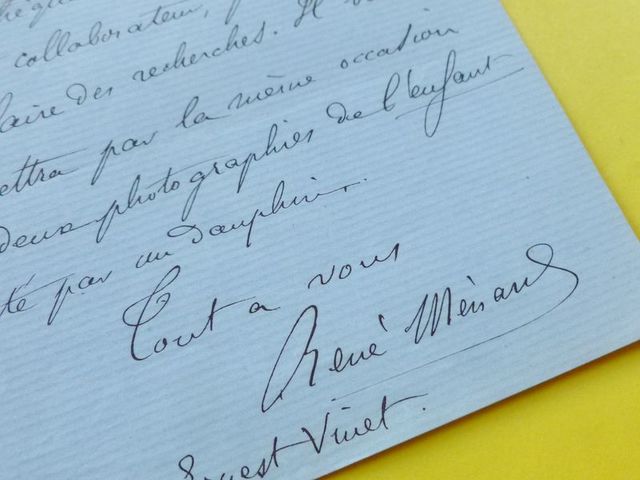 collaborateur,
faire des recherches. Il
par la même occasion
deux photographies de l'enfant
té par un dauphin.
Tout a vous
René Ménard
Ernest Vinet.